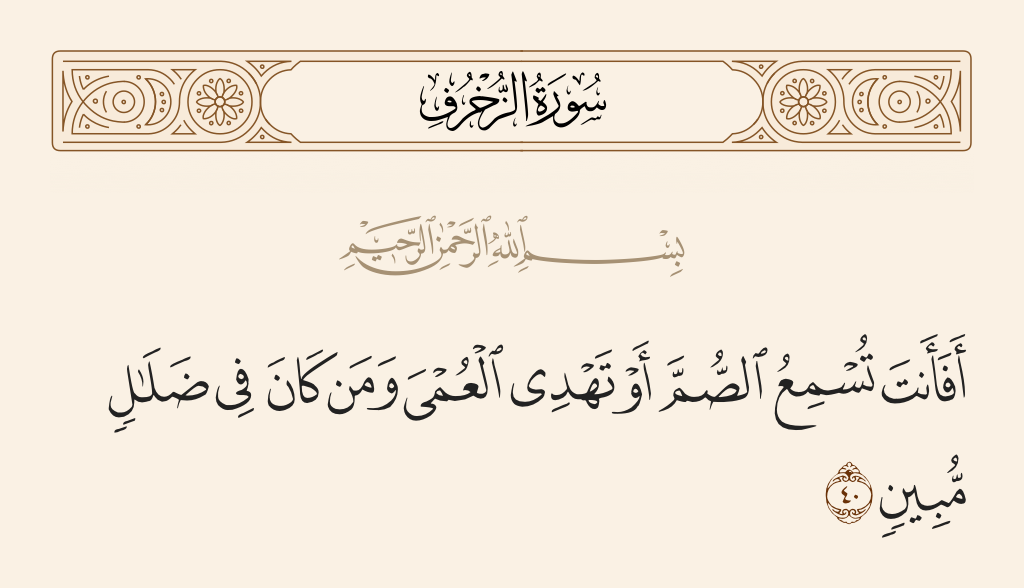 سُورَةُ الزُّخْرُفِ
بِسْمِ ٱللَّهِ ٱلرَّحْمَٰنِ ٱلرَّحِيمِ
أَفَأَنتَ تُسْمِعُ ٱلصُّمَّ أَوْ تَهْدِى ٱلْعُمْىَ وَمَن كَانَ فِى ضَلَٰلٍ
مُّبِينٍ ٤٠